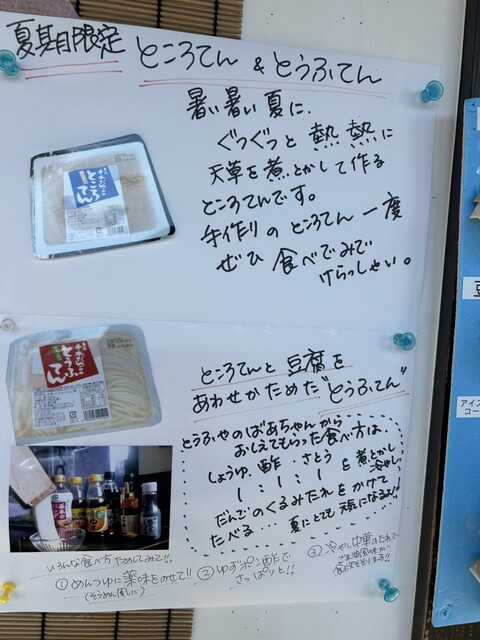 夏期限定 ところてん & とうふてん
暑い暑い夏に、
ぐつぐつと 熱熱に
天草を煮とかして作る
ところてんです。
手作りの ところてん 一度
ぜひ 食べてみで
けらっしゃい。
ところてん
とうふ
てん
ところてんと 豆腐を
あわせかためた"とうふてん"
とうふやのばあちゃんから
おしえてもらった食べ方は、
しょうゆ、酢、さとう
1 : 1 : 1 を煮とかし
冷やし、
だんでのくるみたれをかけて
たべる… 夏にとても元気になるよ!!
いろんな食べ方ためしてみて!!
① めんつゆに薬味をのせて!!
(そうめん風に)
② ゆずポン酢で
さっぱりと!!
③ 冷やし中華のたれで
ごま油風味が
食欲をそそります!!
豆
アイス
コー